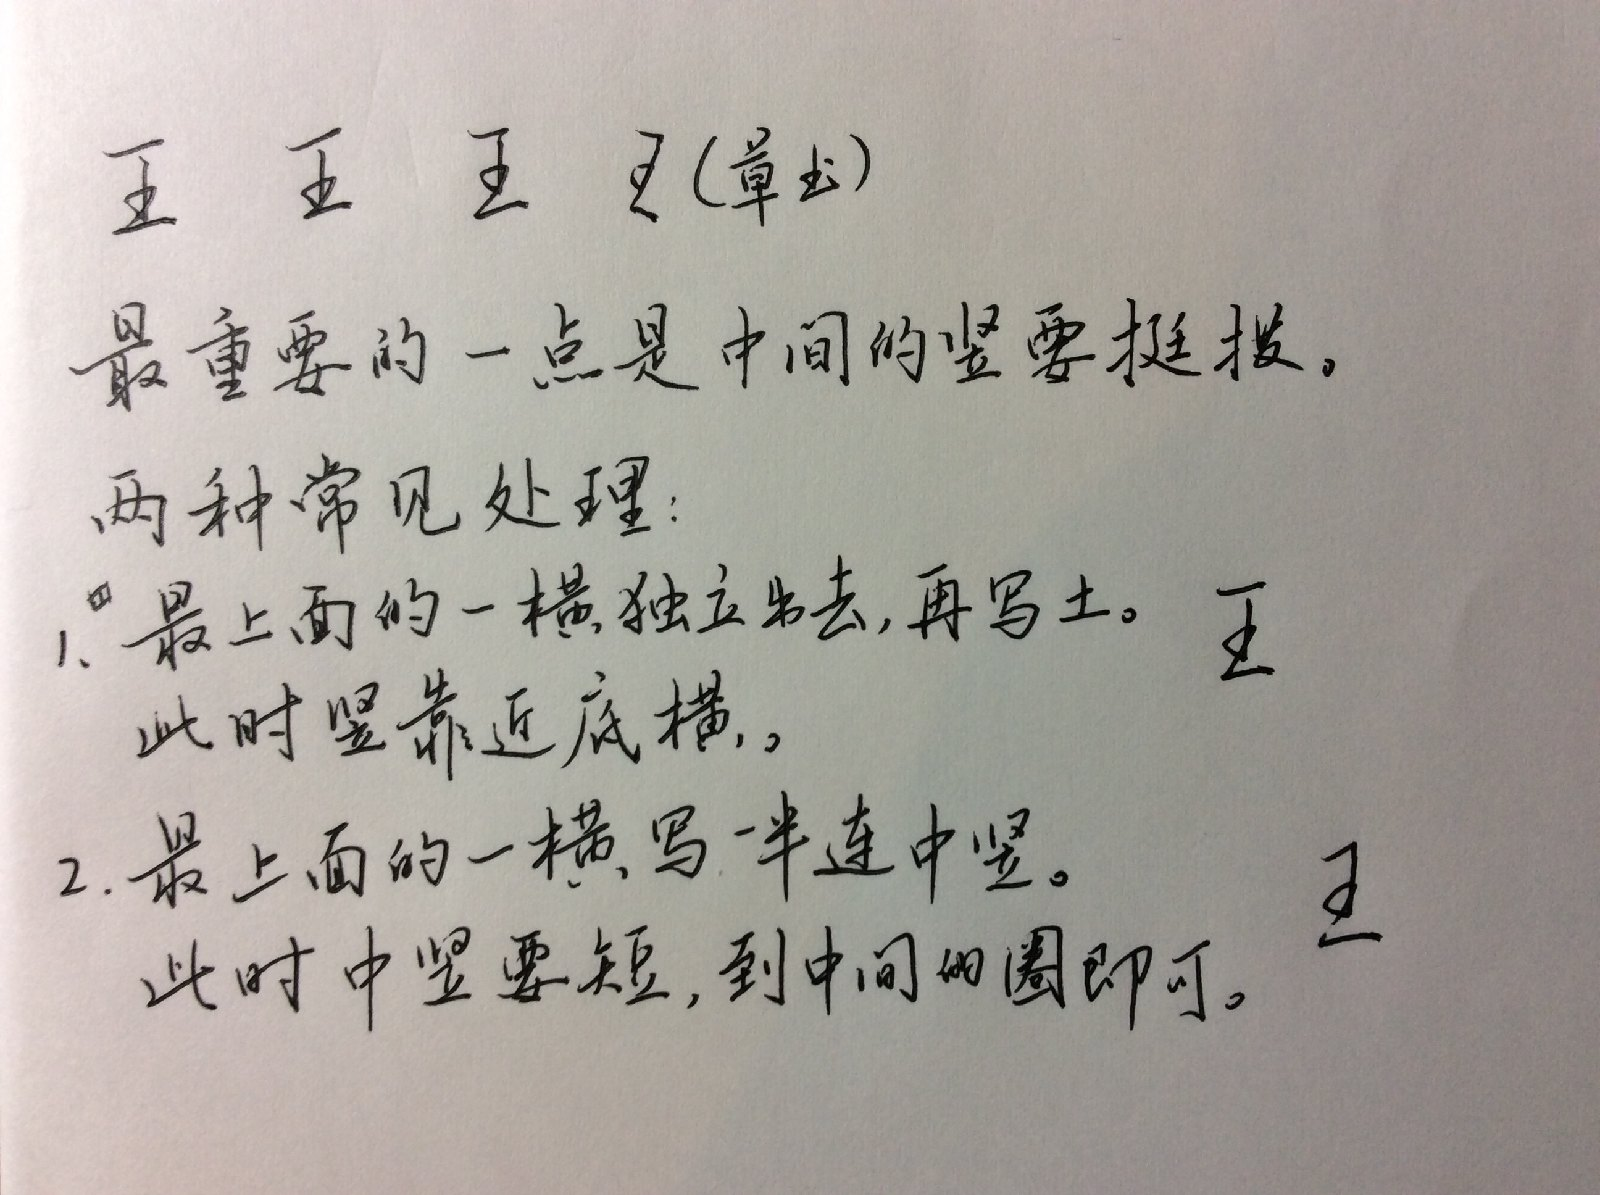 王 王 王 王(草书)
最重要的一点是中间的竖要挺拔。
两种常见处理:
1、最上面的一横独立出去,再写土。 王
此时竖靠近底横。
2.最上面的一横写一半连中竖。 王
此时中竖要短,到中间的圈即可。